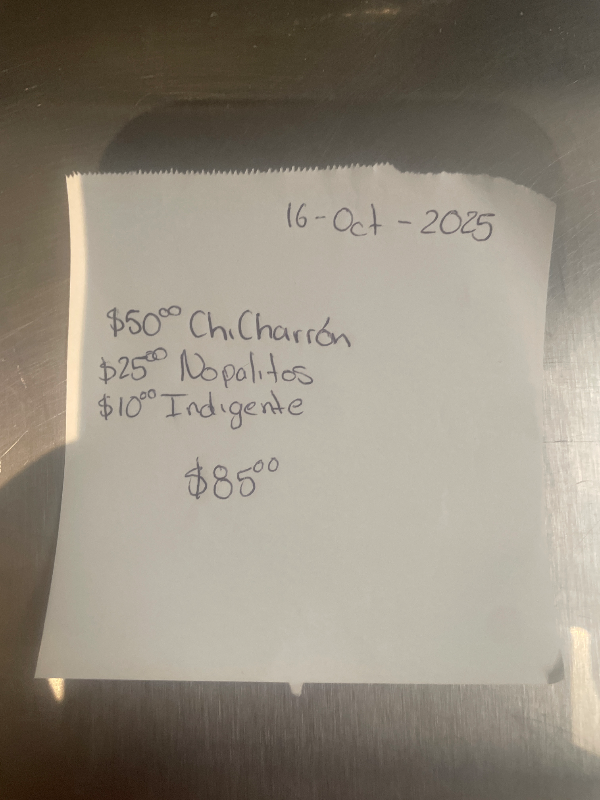 16-Oct-2025
$50⁰⁰ ChiCharrón
$25⁰⁰ Nopalitos
$10⁰⁰ Indigente
$85⁰⁰